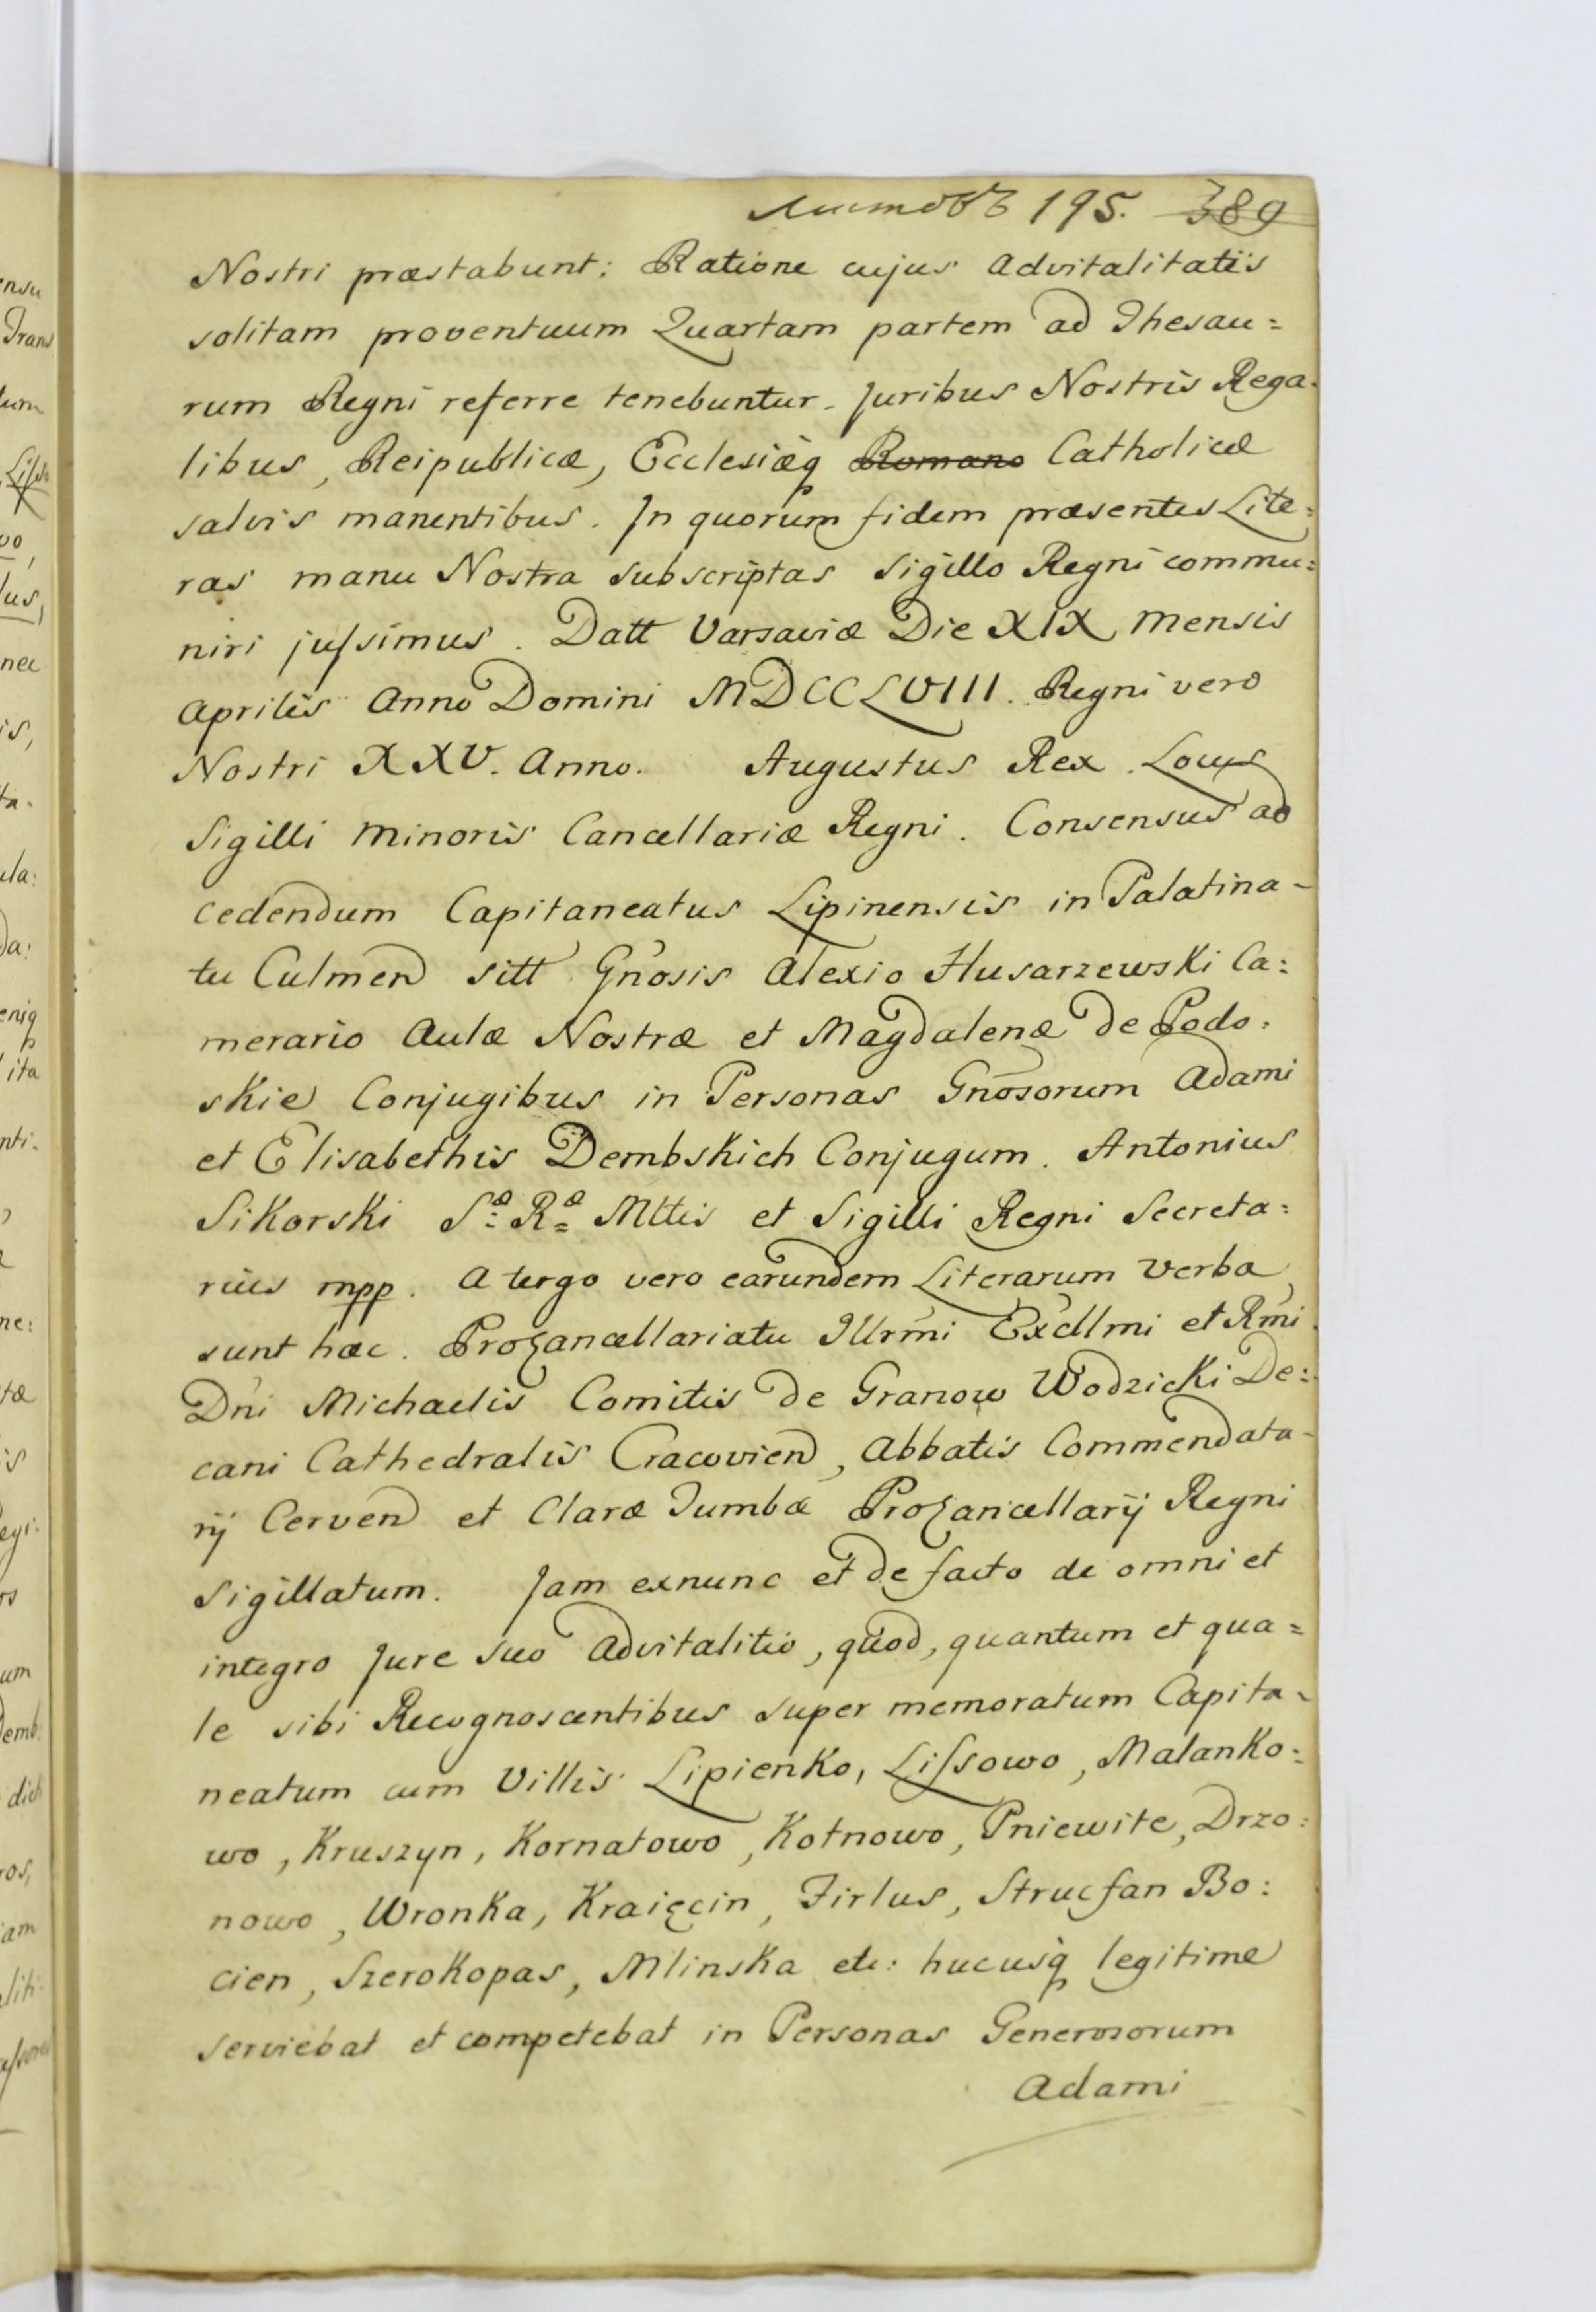 листовъ 195. 389
Nostri præstabunt: Ratione cujus Advitalitatis
solitam proventuum Quartam partem ad Thesau=
rum Regni referre tenebuntur. Juribus Nostris Rega-
libus, Reipublicæ, Ecclesiæq Romano Catholicæ
salvis manentibus. In quorum fidem præsentes Lite=
ras manu Nostra subscriptas Sigillo Regni commu=
niri jussimus. Datt Varsaviæ Die XIX Mensis
Aprilis Anno Domini MDCCLVIII. Regni vero
Nostri XXV. Anno. Augustus Rex. Locus
Sigilli Minoris Cancellariæ Regni. Consensus ad
cedendum Capitaneatus Lipinensis in Palatina-
tu Culmen sitt Gnosis Alexio Husarzewski Ca=
merario Aulæ Nostræ et Magdalenæ de Podo=
skie Conjugibus in Personas Gnosorum Adami
et Elisabethis Dembskich Conjugum. Antonius
Sikorski Sæ Ræ Mttis et Sigilli Regni Secreta=
rius mpp. A tergo vero earundem Literarum verba
sunt hæc. Procancellariatu Illrmi Excllmi et Rmi
Dni Michaelis Comitis de Granow Wodzicki De=
cani Cathedralis Cracovien, Abbatis Commendata-
rij Cerven et Claræ Tumbæ Procancellarij Regni
Sigillatum. Jam exnunc et de facto de omni et
integro Jure suo Advitalitio, quod, quantum et qua=
le sibi Recognoscentibus super memoratum Capita-
neatum cum Villis Lipienko, Lissowo, Malanko=
wo, Kruszyn, Kornatowo, Kotnowo, Pniewite, Drzo=
nowo, Wronka, Kraięcin, Firlus, Strucfan Bo=
cien, Szerokopas, Mlinska etc: hucusq legitime
serviebat et competebat in Personas Generosorum
Adami